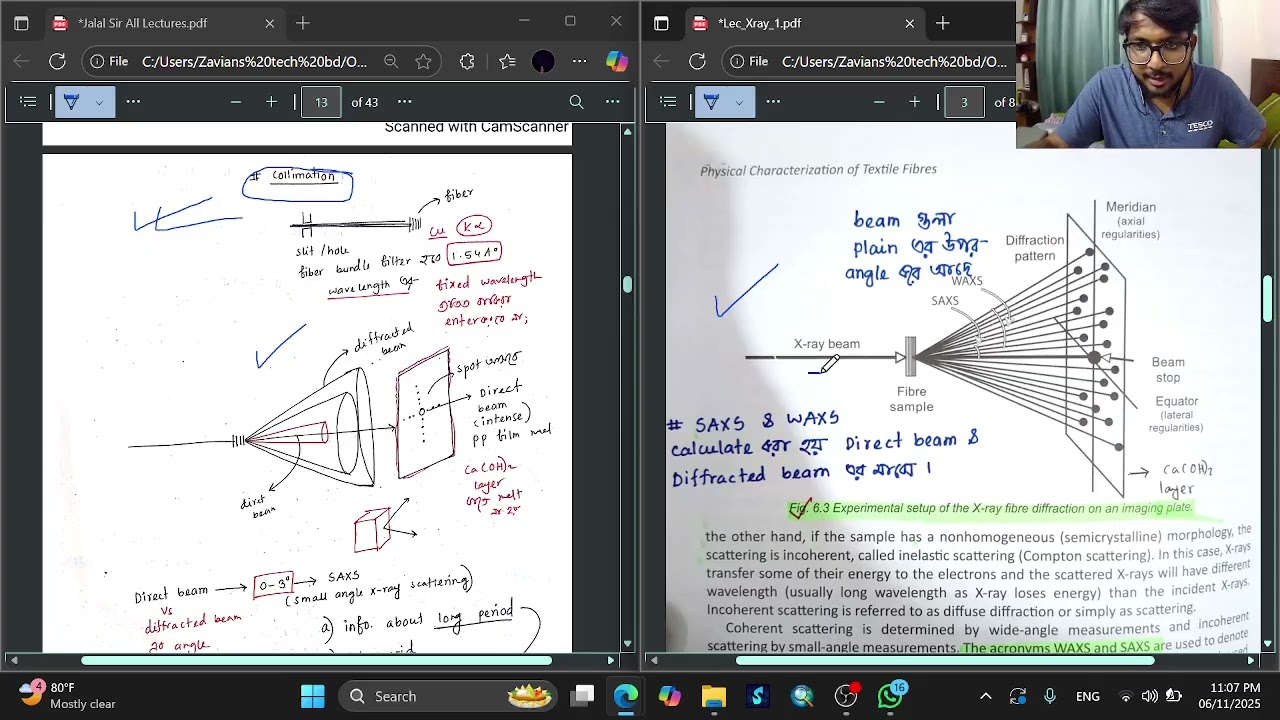 *Jalal Sir All Lectures.pdf
File
C:/Users/Zavians%20tech%20bd/O...
13 of 43
Scanned with CamScanner
# Collimation
fiber
slit/hole
Cu Kα
fiber bundle filter
1.54A°
wavelength
fixed wavelength
enter
diffracted beam
spot
Direct beam (intense)
pp film
Ca(OH)₂ layer
melt
dirct beam
Direct beam → 0-3° → SAXS
vs
(small angle x-ray scattering)
diffracted beam
2θ angle
a) info. about long period
*Lec_Xray_1.pdf
File
C:/Users/Zavians%20tech%20bd/O...
3 of 8
TESCO
Physical Characterization of Textile Fibres
beam গুলা
plain এর উপর-
angle করে আছে
Diffraction pattern
Meridian
(axial regularities)
WAXS
SAXS
X-ray beam
Fibre sample
Beam stop
Equator
(lateral regularities)
# SAXS & WAXS
calculate করা হয় Direct beam &
Diffracted beam এর মাঝে।
→ Ca(OH)₂ layer
Fig. 6.3 Experimental setup of the X-ray fibre diffraction on an imaging plate.
the other hand, if the sample has a nonhomogeneous (semicrystalline) morphology, the
scattering is incoherent, called inelastic scattering (Compton scattering). In this case, X-rays
transfer some of their energy to the electrons and the scattered X-rays will have different
wavelength (usually long wavelength as X-ray loses energy) than the incident X-rays.
Incoherent scattering is referred to as diffuse diffraction or simply as scattering.
Coherent scattering is determined by wide-angle measurements and incoherent
scattering by small-angle measurements. The acronyms WAXS and SAXS are used to denote
4
80°F
Mostly clear
Search
16
ENG
11:07 PM
06/11/2025